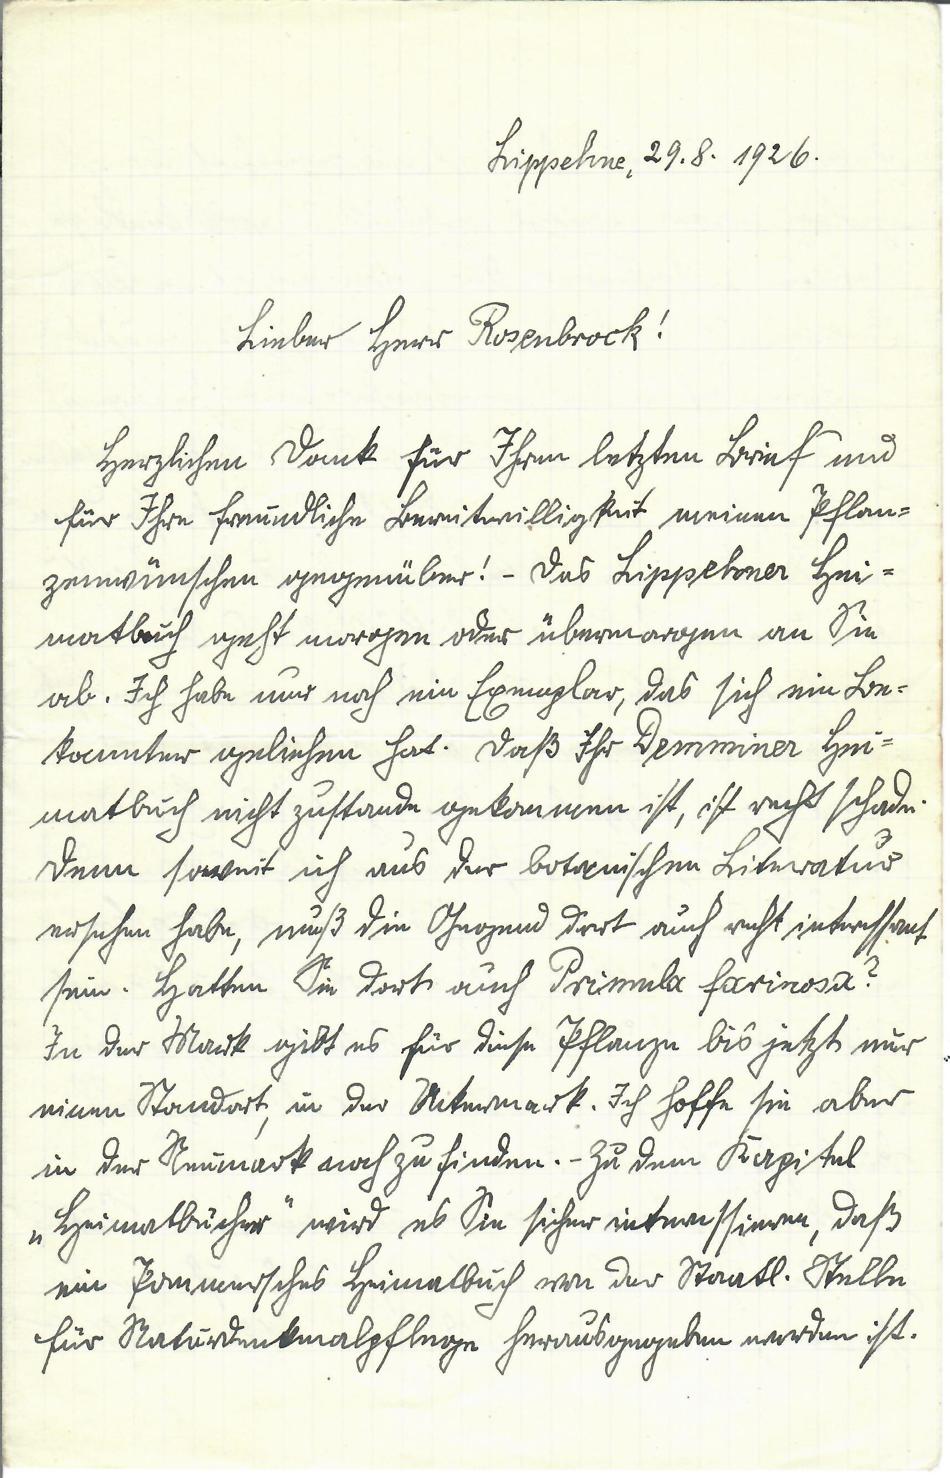 Lippehne, 29.8. 1926.
Lieber Herr Rosenbrock!
Herzlichen Dank für Ihren letzten Brief und
für Ihre freundliche Bereitwilligkeit meinen Pflan=
zenwünschen gegenüber! - Das Lippehner Hei=
matbuch geht morgen oder übermorgen an Sie
ab. Ich habe nur noch ein Exemplar, das sich ein Be=
kannter geliehen hat. Daß Ihr Demminer Hei=
matbuch nicht zustande gekommen ist, ist recht schade.
Denn soweit ich aus der botanischen Literatur
ersehen habe, muß die Gegend dort auch recht interessant
sein. Hatten Sie dort auch Primula farinosa?
In der Mark gibt es für diese Pflanze bis jetzt nur
einen Standort, in der Uckermark. Ich hoffe sie aber
in der Neumark noch zu finden. - Zu dem Kapitel
„Heimatbücher" wird es Sie sicher interessieren, daß
ein Pommersches Heimatbuch von der Staatl. Stelle
für Naturdenkmalpflege herausgegeben worden ist.